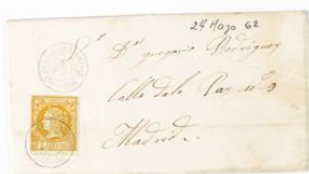 24 Mayo 62
Sr Dn Gregorio Rodriguez
Calle dela Paz nº 9
Madrid.